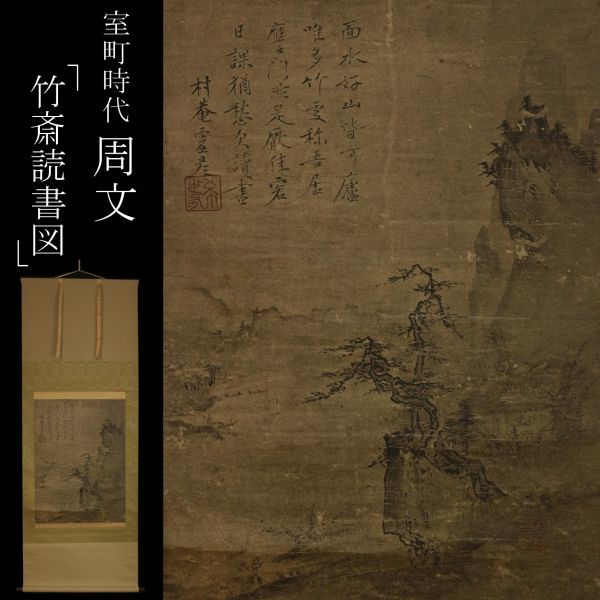 室町時代 周文
「竹斎読書図」
面水好山皆可廬
唯多竹處称吾居
應門非是厭佳客
日課猶愁欠讀書
村菴靈彦